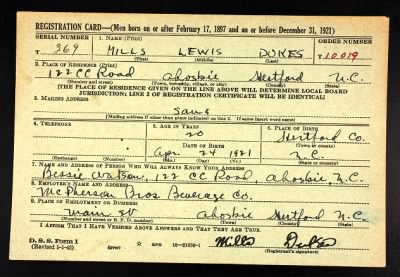 REGISTRATION CARD—(Men born on or after February 17, 1897 and on or before December 31, 1921)
SERIAL NUMBER 1. NAME (Print) ORDER NUMBER
T 369 MILLS LEWIS DUKES 10019
(First) (Middle) (Last)
2. PLACE OF RESIDENCE (Print)
122 CC Road Ahoskie Hertford N.C.
(Number and street) (Town, township, village, or city) (County) (State)
[THE PLACE OF RESIDENCE GIVEN ON THE LINE ABOVE WILL DETERMINE LOCAL BOARD
JURISDICTION; LINE 2 OF REGISTRATION CERTIFICATE WILL BE IDENTICAL]
3. MAILING ADDRESS
same
[Mailing address if other than place indicated on line 2. If same insert word same]
4. TELEPHONE 5. AGE IN YEARS 6. PLACE OF BIRTH
20 Hertford Co.
DATE OF BIRTH (Town or county)
Apr. 24 1921 N.C.
(Exchange) (Number) (Mo.) (Day) (Yr.) (State or country)
7. NAME AND ADDRESS OF PERSON WHO WILL ALWAYS KNOW YOUR ADDRESS
Bessie Watson, 122 CC Road, Ahoskie, N.C.
8. EMPLOYER'S NAME AND ADDRESS
McPherson Bros. Beverage Co.
9. PLACE OF EMPLOYMENT OR BUSINESS
Main St Ahoskie Hertford N.C.
(Number and street or R. F. D. number) (Town) (County) (State)
I AFFIRM THAT I HAVE VERIFIED ABOVE ANSWERS AND THAT THEY ARE TRUE.
D. S. S. Form 1
(Revised 1-1-42) (over) ★ GPO 16—21630-1 Mills Dukes
(Registrant's signature)